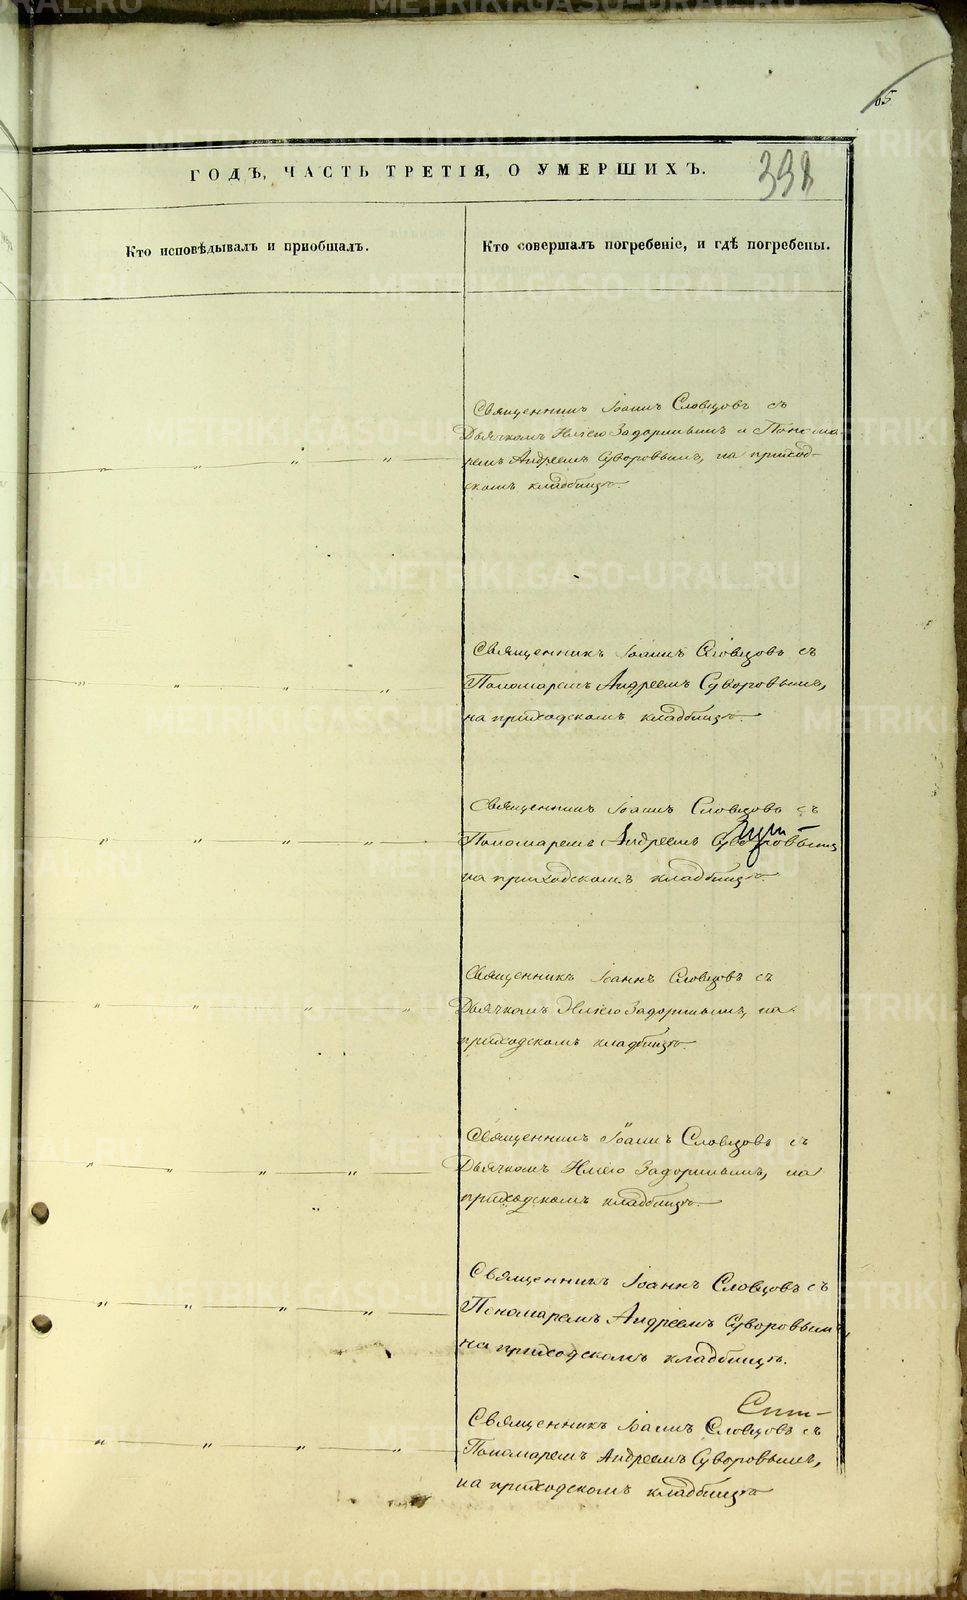 65
ГОДЪ, ЧАСТЬ ТРЕТІЯ, О УМЕРШИХЪ.
398
Кто исповѣдывалъ и пріобщалъ.
Кто совершалъ погребеніе, и гдѣ погребены.
Священникъ Іоаннъ Словцовъ съ
Дьячкомъ Иліею Задоринымъ и Понома-
ремъ Андреемъ Суворовымъ, на приход-
скомъ кладбищѣ.
Священникъ Іоаннъ Словцовъ съ
Пономаремъ Андреемъ Суворовымъ,
на приходскомъ кладбищѣ.
Священникъ Іоаннъ Словцовъ съ
Пономаремъ Андреемъ Суворовымъ
на приходскомъ кладбищѣ.
Священникъ Іоаннъ Словцовъ съ
Дьячкомъ Иліею Задоринымъ, на
приходскомъ кладбищѣ.
Священникъ Іоаннъ Словцовъ съ
Дьячкомъ Иліею Задоринымъ, на
приходскомъ кладбищѣ.
Священникъ Іоаннъ Словцовъ съ
Пономаремъ Андреемъ Суворовымъ,
на приходскомъ кладбищѣ.
Священникъ Іоаннъ Словцовъ съ
Пономаремъ Андреемъ Суворовымъ,
на приходскомъ кладбищѣ
METRIKI.GASO-URAL.RU